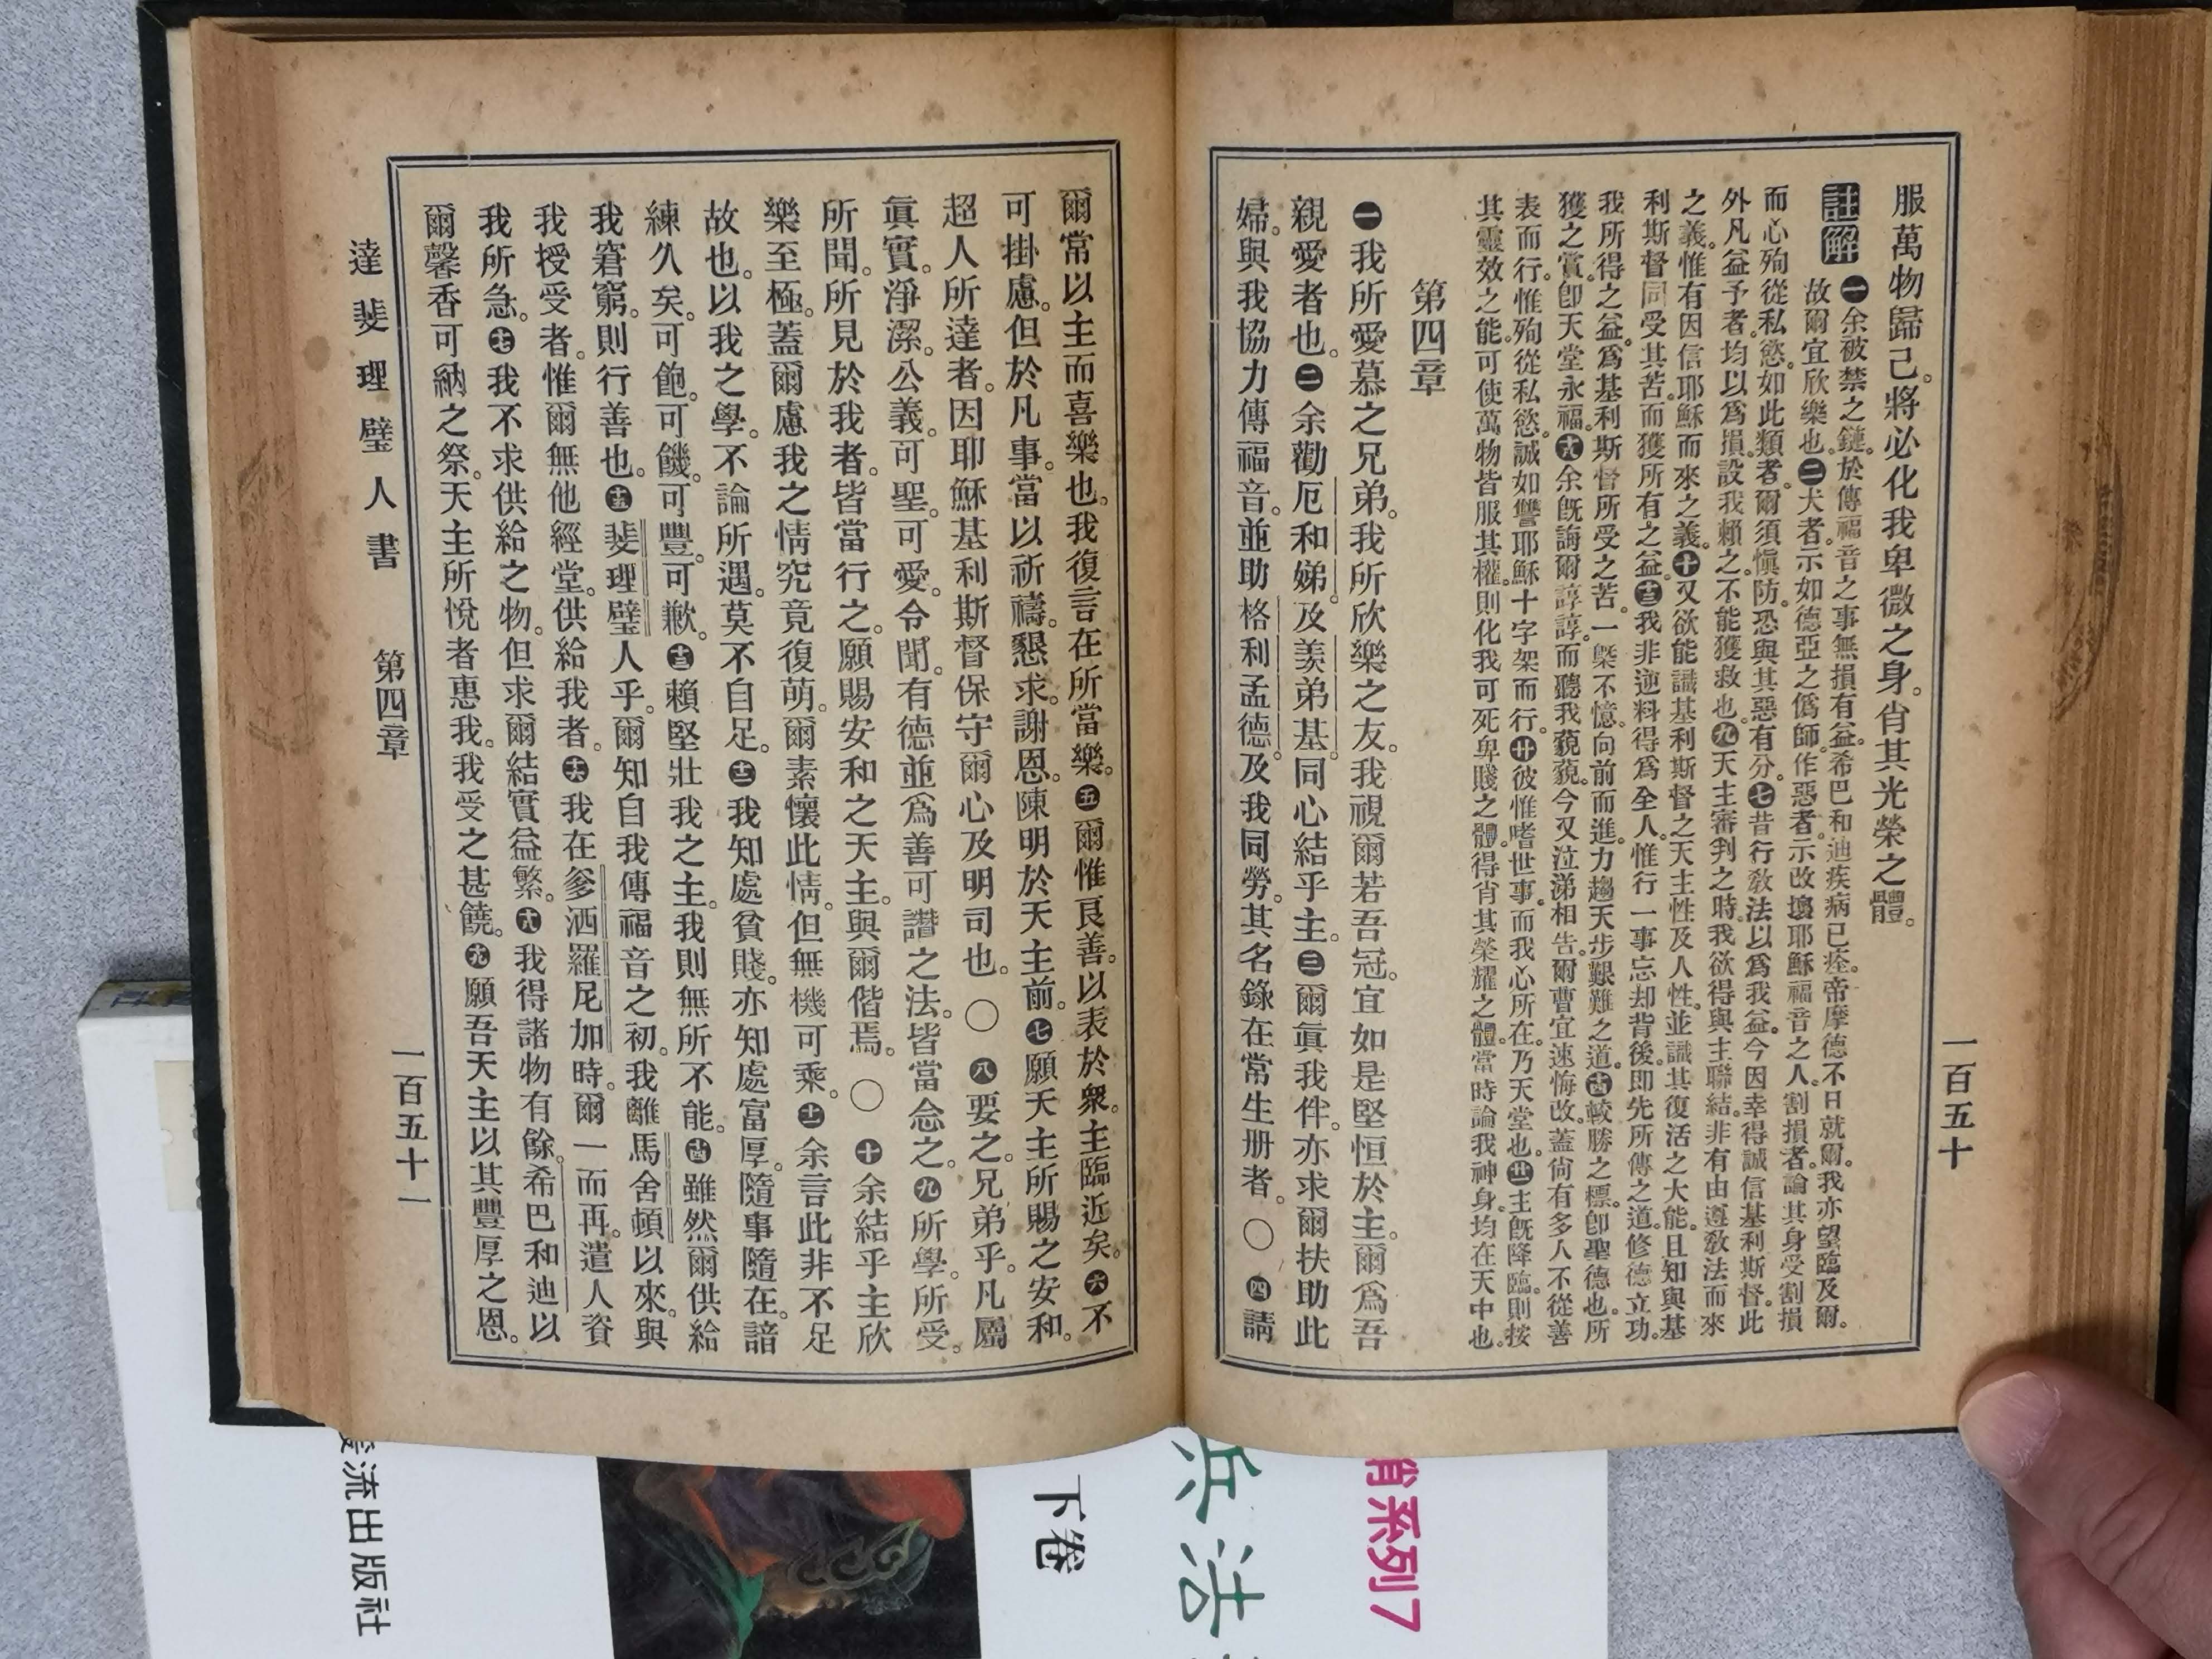 服萬物歸己。將必化我卑微之身。肖其光榮之體。
註解 ㊀余被禁之鏈。於傳福音之事無損有益。希巴和迪疾病已痊。帝摩德不日就爾。我亦望臨及爾。
故爾宜欣樂也。㊁犬者。示如德亞之僞師。作惡者。示改壞耶穌福音之人。割損者。論其身受割損
而心殉從私慾。如此類者。爾須愼防。恐與其惡有分。㊆昔行敎法以爲我益。今因幸得誠信基利斯督。此
外凡益予者。均以爲損。設我賴之。不能獲救也。㊈天主審判之時。我欲得與主聯結。非有由遵敎法而來
之義。惟有因信耶穌而來之義。㊉又欲能識基利斯督之天主性及人性。並識其復活之大能。且知與基
利斯督同受其苦。而獲所有之益。⑫我非逆料得爲全人。惟行一事。忘却背後。即先所傳之道。修德立功。
我所得之益。爲基利斯督所受之苦。一槩不憶。向前而進。力趨天步艱難之道。⑭較勝之標。卽聖德也。所
獲之賞。卽天堂永福。⑱余旣誨爾諄諄。而聽我藐藐。今又泣涕相告。爾曹宜速悔改。蓋尙有多人不從善
表而行。惟殉從私慾。誠如讐耶穌十字架而行。⑳彼惟嗜世事。而我心所在。乃天堂也。㉑主旣降臨。則按
其靈效之能。可使萬物皆服其權。則化我可死卑賤之體。得肖其榮耀之體。當時論我神身。均在天中也。
第四章
㊀我所愛慕之兄弟。我所欣樂之友。我視爾若吾冠。宜如是堅恒於主。爾爲吾
親愛者也。㊁余勸厄和娣。及羨弟基。同心結乎主。㊂爾眞我伴。亦求爾扶助此
婦。與我協力傳福音。並助格利孟德。及我同勞。其名錄在常生册者。〇㊃請
一百五十
爾常以主而喜樂也。我復言在所當樂。㊄爾惟良善。以表於衆。主臨近矣。㊅不
可掛慮。但於凡事。當以祈禱。懇求。謝恩。陳明於天主前。㊆願天主所賜之安和。
超人所達者。因耶穌基利斯督保守爾心及明司也。〇㊇要之。兄弟乎。凡屬
眞實。淨潔。公義。可聖。可愛。令聞。有德並爲善可讚之法。皆當念之。㊈所學。所受。
所聞。所見於我者。皆當行之。願賜安和之天主。與爾偕焉。〇㊉余結乎主欣
樂至極。蓋爾慮我之情究竟復萌。爾素懷此情。但無機可乘。⑪余言此非不足
故也。以我之學。不論所遇。莫不自足。⑫我知處貧賤。亦知處富厚。隨事隨在。諳
練久矣。可飽。可饑。可豐。可歉。⑬賴堅壯我之主。我則無所不能。⑭雖然爾供給
我窘窮。則行善也。⑮斐理璧人乎。爾知自我傳福音之初。我離馬舍頓以來。與
我授受者。惟爾無他經堂。供給我者。⑯我在爹洒羅尼加時。爾一而再。遣人資
我所急。⑰我不求供給之物。但求爾結實益繁。⑱我得諸物有餘。希巴和迪以
爾馨香可納之祭。天主所悅者惠我。我受之甚饒。⑲願吾天主以其豐厚之恩。
達斐理璧人書 第四章 一百五十一
流出版社
下卷
兵法
肖系列7